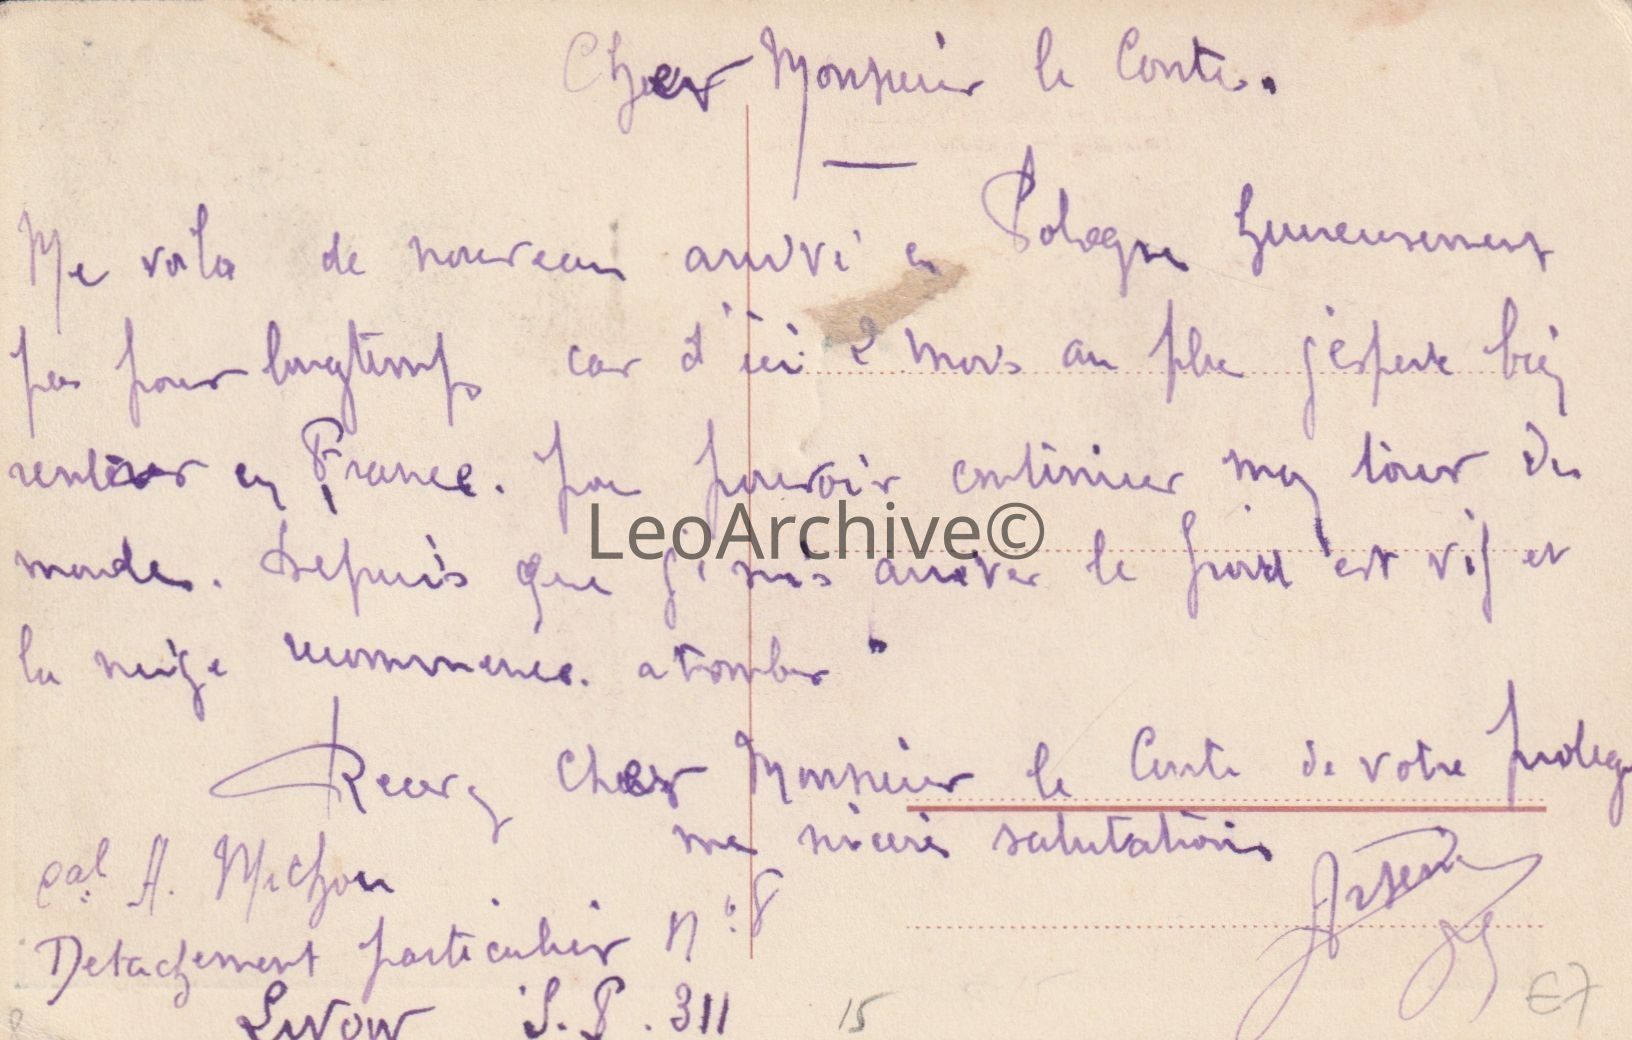 Cher Monsieur le Conte.
Me voila de nouveau arrivé en Pologne heureusement
pas pour longtemps car d'ici 2 mois au plu j'espere bien
rentrer en France. pou pouvoir continuer mon tour du
monde. Depuis que je suis arriver le froid est vif et
la neige recommence. a tomber
Recevez Cher Monsieur le Conte de votre proteg
me sincere salutations
Arsene
cal A. Michon
Detachement particulier N° 8
Lwow S.P. 311
15
E7
LeoArchive©